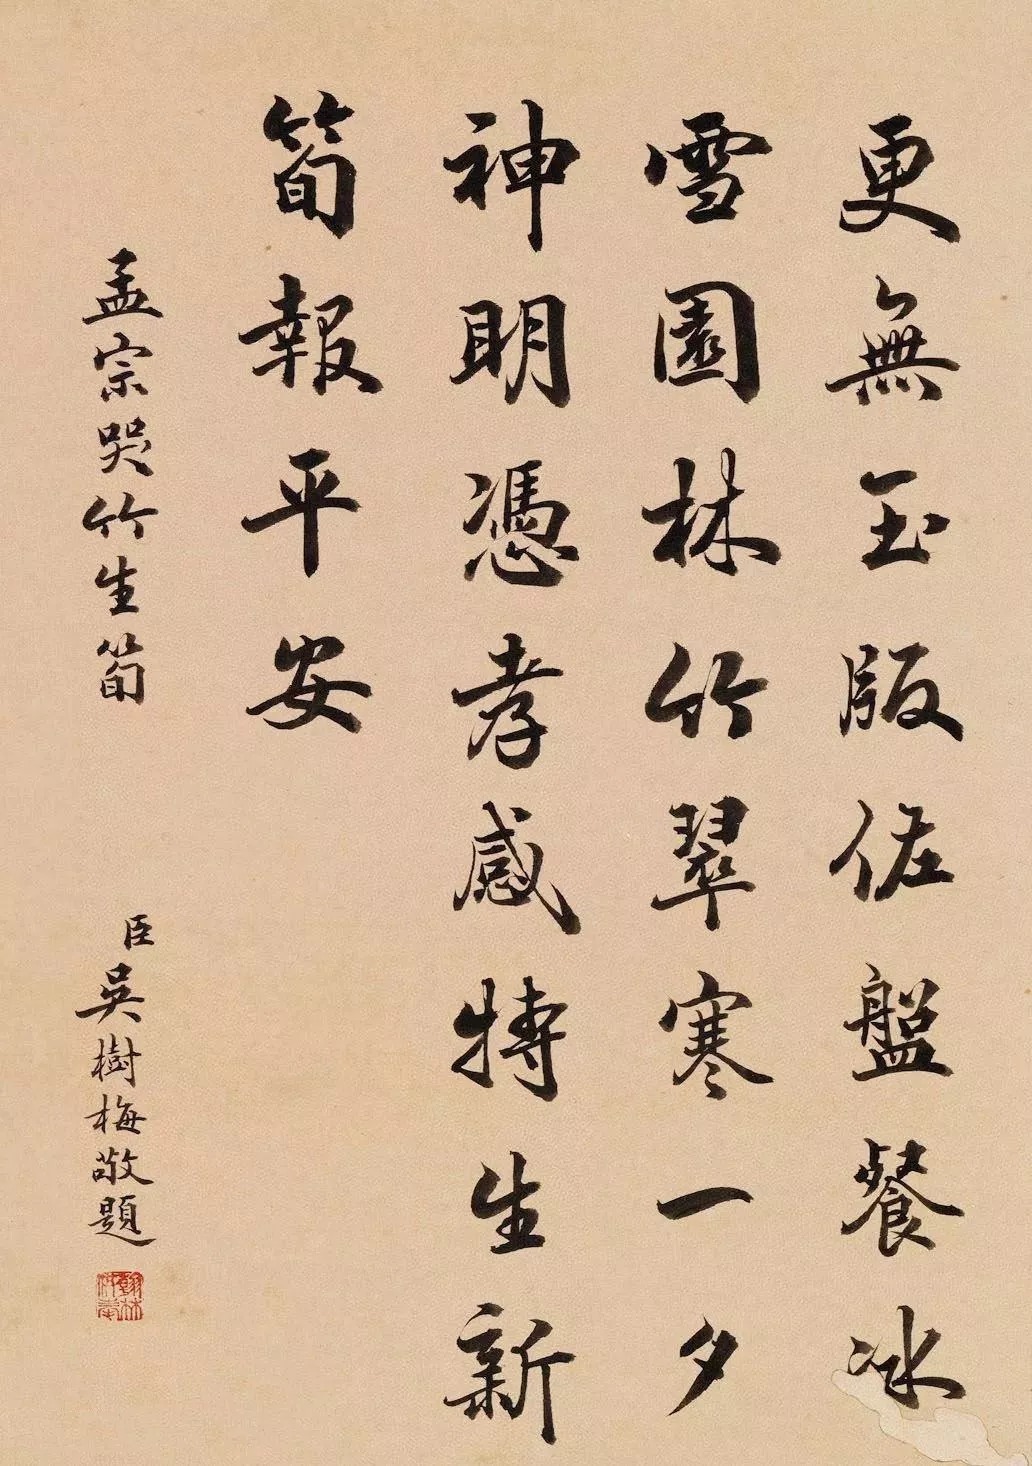 更無玉版佐盤餐冰
雪園林竹翠寒一夕
神明憑孝感特生新
筍報平安
孟宗哭竹生筍
臣吳樹梅敬題
翰林供奉